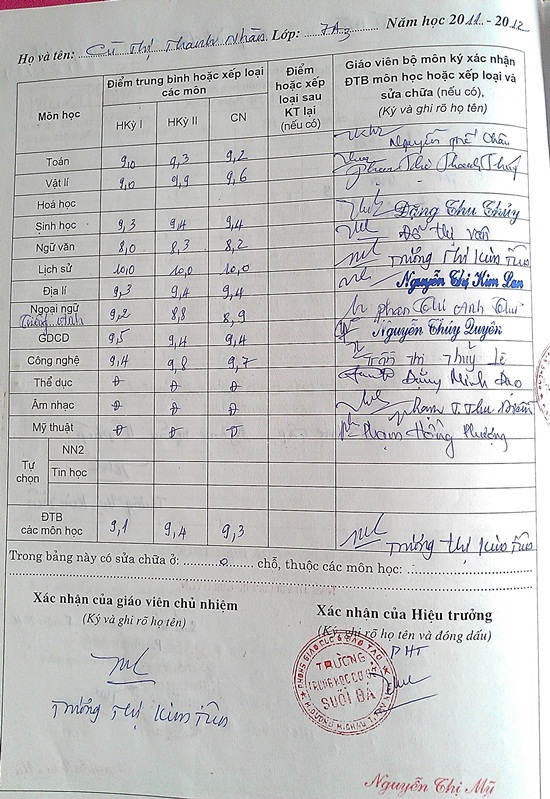 Họ và tên: Cù Thị Thanh Nhàn Lớp: 7A3 Năm học 2011 - 2012
Môn học
Điểm trung bình hoặc xếp loại các môn
HKỳ I HKỳ II CN
Điểm hoặc xếp loại sau KT lại (nếu có)
Giáo viên bộ môn ký xác nhận ĐTB môn học hoặc xếp loại và sửa chữa (nếu có),
(Ký và ghi rõ họ tên)
Toán 9,0 9,3 9,2 Nguyễn Châu
Vật lí 9,0 9,9 9,6 Phan Thị Thanh Thuý
Hoá học
Sinh học 9,3 9,4 9,4 Đặng Thu Thủy
Ngữ văn 8,0 8,3 8,2 Đỗ Thị Vân
Lịch sử 10,0 10,0 10,0 Trương Thị Kim
Địa lí 9,3 9,4 9,4 Nguyễn Thị Kim Lan
Ngoại ngữ Tiếng Anh 9,2 8,8 8,9 Phan Thị Anh Thư
GDCD 9,5 9,4 9,4 Nguyễn Thúy Quyên
Công nghệ 9,4 9,8 9,7 Trần Thị Thuý Lê
Thể dục Đ Đ Đ Đặng Minh Đạo
Âm nhạc Đ Đ Đ Phạm T. Thu
Mỹ thuật Đ Đ Đ Phạm Hồng Phượng
Tự chọn
NN2
Tin học
ĐTB các môn học 9,1 9,4 9,3 Trương Thị Kim
Trong bảng này có sửa chữa ở: 0 chỗ, thuộc các môn học:
Xác nhận của giáo viên chủ nhiệm
(Ký và ghi rõ họ tên)
Trương Thị Kim
Xác nhận của Hiệu trưởng
(Ký, ghi rõ họ tên và đóng dấu)
PHT
PHÒNG GIÁO DỤC & ĐÀO TẠO
TRƯỜNG
TRUNG HỌC CƠ SỞ
SUỐI ĐÁ
Nguyễn Thị Mỹ